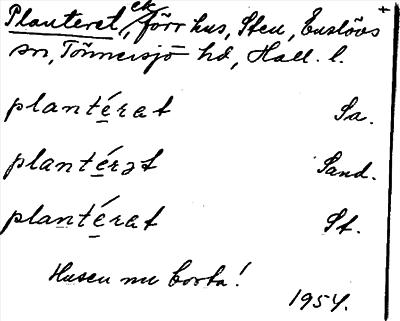 Planteret, ek förr hus, Sten, Enslövs
sn, Tönnersjö hd, Hall. l.
plantérat Sa.
plantérət Sand.
plantérat St.
Husen nu borta!
1954.